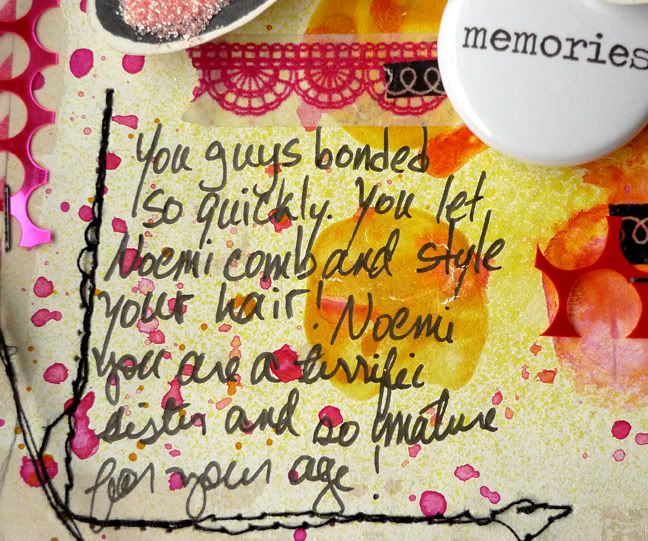 memories
You guys bonded
so quickly. You let
Noemi comb and style
your hair! Noemi
you are a terrific
sister and so mature
for your age!